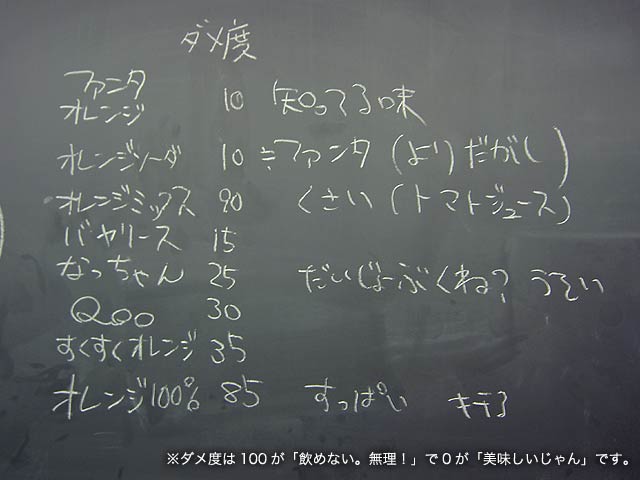 ダメ度
ファンタ
オレンジ 10 知ってる味
オレンジソーダ 10 ≒ファンタ (よりだがし)
オレンジミックス 90 くさい (トマトジュース)
バヤリース 15
なっちゃん 25 だいじょーぶくね? うそい
Qoo 30
すくすくオレンジ 35
オレンジ100% 85 すっぱい キテる
※ダメ度は100が「飲めない。無理!」で0が「美味しいじゃん」です。